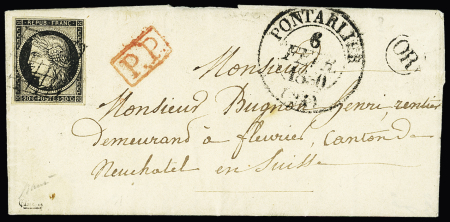 REPUB. FRANC.
20 C POSTE 20 C
P.P.
PONTARLIER
6
FEVR.
1850
(24)
OR
Monsieur
Monsieur Bugnon henri rentier
demeurand à fleurier, canton de
Neuchatel en Suisse